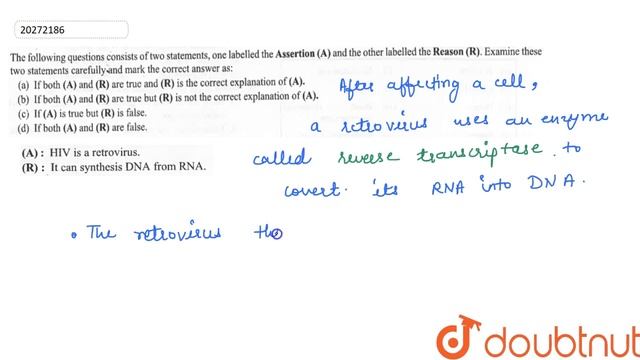 20272186
The following questions consists of two statements, one labelled the Assertion (A) and the other labelled the Reason (R). Examine these
two statements carefully and mark the correct answer as:
(a) If both (A) and (R) are true and (R) is the correct explanation of (A).
(b) If both (A) and (R) are true but (R) is not the correct explanation of (A).
(c) If (A) is true but (R) is false.
(d) If both (A) and (R) are false.
(A) : HIV is a retrovirus.
(R) : It can synthesis DNA from RNA.
After affecting a cell,
a retrovirus uses an enzyme
called reverse transcriptase to
covert its RNA into DNA.
• The retrovirus the
doubtnut